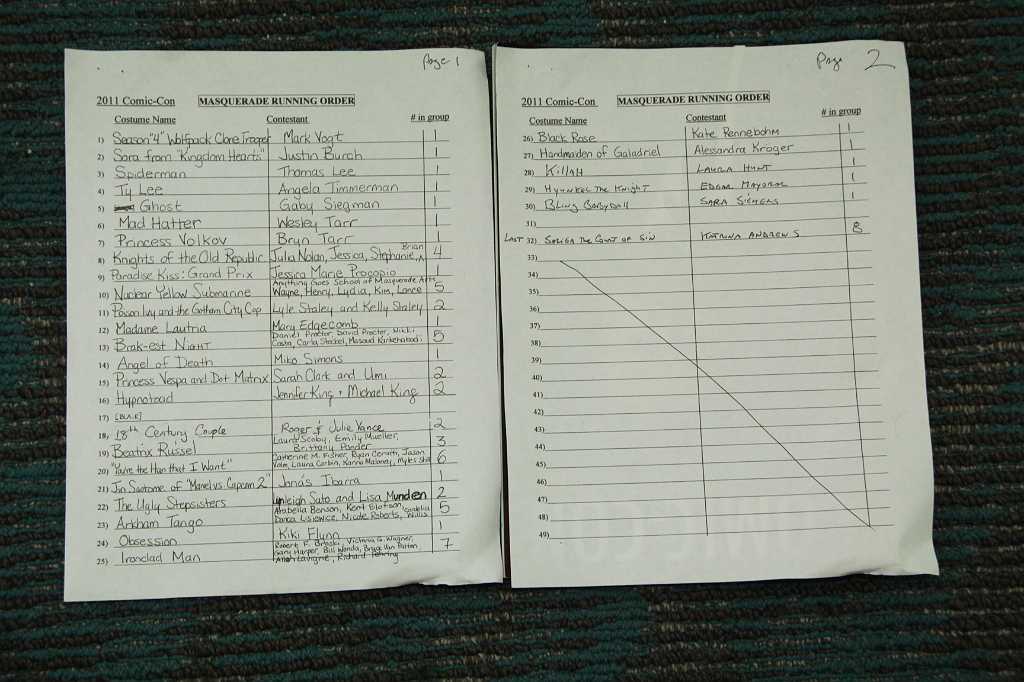 Page 1
2011 Comic-Con MASQUERADE RUNNING ORDER
Costume Name Contestant # in group
1) Season "4" Wolfpack Clone Trooper Mark Vogt 1
2) Sora from "Kingdom Hearts" Justin Burch 1
3) Spiderman Thomas Lee 1
4) Ty Lee Angela Timmerman 1
5) Ghost Gaby Siegman 1
6) Mad Hatter Wesley Tarr 1
7) Princess Volkov Bryn Tarr 1
8) Knights of the Old Republic Julia Nolan, Jessica, Stephanie, Brian 4
9) Paradise Kiss: Grand Prix Jessica Marie Procopio 1
Anything Goes School of Masquerade Arts
10) Nuclear Yellow Submarine Wayne, Henry, Lydia, Kim, Lance 5
11) Poison Ivy and the Gotham City Cop Lyle Staley and Kelly Staley 2
12) Madame Lautria Mary Edgecomb 1
Daniel Proctor, David Proctor, Nikki
13) Brak-est NIGHT Costa, Carla 5
14) Angel of Death Miko Simons 1
15) Princess Vespa and Dot Matrix Sarah Clark and Umi 2
16) Hypnotoad Jennifer King + Michael King 2
17)
18) 18th Century Couple Roger & Julie Vance 2
Laura Scoby, Emily Mueller,
19) Beatrix Russel Brittany Ponder 3
Catherine M. Fisher, Ryan Jason
20) "You're the Han that I Want" Laura Corbin, Karina Maloney, Myles 6
21) Jin Saotome of "Marvel vs Capcom 2" Jonas Ibarra 1
22) The Ugly Stepsisters Leigh Sato and Lisa Munden 2
Arabella Benson, Kent
23) Arkham Tango Nicole Roberts, Willis 5
24) Obsession Kiki Flynn 1
Robert F. Victoria G. Wagner,
Gary Harper, Bill
25) Ironclad Man Allen Lavigne, Richard 7
Page 2
2011 Comic-Con MASQUERADE RUNNING ORDER
Costume Name Contestant # in group
26) Black Rose Kate Rennebohm 1
27) Handmaiden of Galadriel Alessandra Kroger 1
28) KILLAH LAURA HUNT 1
29) HYUNKEL THE KNIGHT EDGAR MAYORAL 1
30) BLING BABYDOLL SARA SIEMENS 1
31)
LAST 32) THE COURT OF SIN KATRINA ANDREWS 8
33)
34)
35)
36)
37)
38)
39)
40)
41)
42)
43)
44)
45)
46)
47)
48)
49)